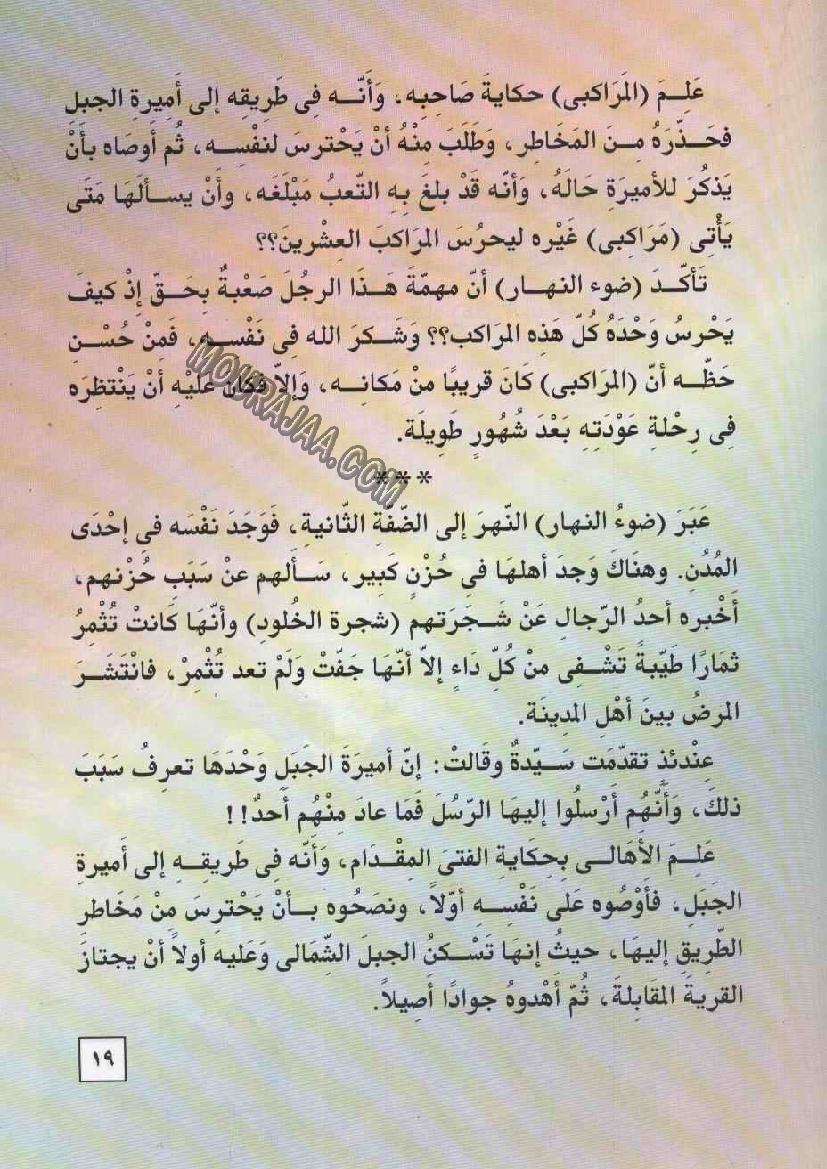 عَلِمَ (المَرَاكبى) حكايةَ صَاحِبِه، وَأَنَّه فِى طَرِيقِه إلى أَميرةِ الجبلِ
فحَذّرَهُ مِنَ المَخَاطِر، وَطَلَبَ مِنْهُ أنْ يَحْترسَ لنفْسِه، ثُم أوصَاه بأَنْ
يَذكُرَ للأميرَةِ حَالَهُ، وَأنّه قَدْ بلغَ بِهِ التّعبُ مَبْلَغَه، وأنْ يسألَهَا مَتَى
يَأْتِى (مَرَاكِبى) غَيْره ليحرُسَ المرَاكبَ العِشْرينَ؟؟
تَأكّدَ (ضوء النهار) أنّ مهمّةَ هَذَا الرجُلِ صَعْبةٌ بِحَقّ إذْ كيفَ
يَحْرسُ وَحْدَهُ كُلّ هَذِه المرَاكب؟؟ وَشَكرَ الله فِى نَفْسِه، فَمِنْ حُسْنِ
حَظّه أنّ (المرَاكبى) كَانَ قريبًا منْ مَكانِه، وَإلاّ فكَانَ عليْهِ أنْ يَنْتظِرَه
فِى رِحْلةِ عَوْدَتِهِ بَعْدَ شُهُورٍ طَوِيلَة.
***
عَبَرَ (ضوءُ النهار) النّهرَ إلى الضّفّةِ الثّانيةِ، فَوَجَدَ نَفْسَه فى إحْدَى
المُدُنِ. وهنَاكَ وجدَ أهلهَا فىِ حُزْنٍ كَبِير، سَألهم عنْ سَبَب حُزْنهم،
أَخْبره أحدُ الرّجالِ عَنْ شَجَرَتهم (شجرة الخُلودِ) وأنّهَا كَانتْ تُثْمِرُ
ثمَارًا طَيّبةً تَشْفِى منْ كُلّ دَاءٍ إلاّ أنّهَا جَفّتْ وَلَمْ تعد تُثْمِرْ، فانْتَشَرَ
المرضُ بينَ أهْلِ المدِينَة.
عِنْدئذٍ تقدّمَت سَيّدةٌ وقَالتْ: إنّ أميرَةَ الجَبَلِ وَحْدَهَا تعرفُ سَبَبَ
ذلكَ، وَأنّهُم أرْسلُوا إليهَا الرّسُلَ فَمَا عادَ مِنْهُم أحدٌ!!
عَلِمَ الأهَالى بِحِكاية الفتىَ المِقْدَام، وَأنّه فِى طَريقِه إلى أميرةِ
الجَبَلِ. فأوْصُوه عَلى نَفْسِهِ أوّلاً، ونصَحُوه بأنْ يَحْترسَ مِنْ مَخَاطرِ
الطّرِيقِ إليهَا، حيثُ إنهَا تَسْكنُ الجبلَ الشّمَالى وَعَليه أولاً أنْ يجتازَ
القريةَ المقَابلةَ، ثُمّ أهْدوهُ جوادًا أصِيلاً.
١٩
MOURAJAA.COM